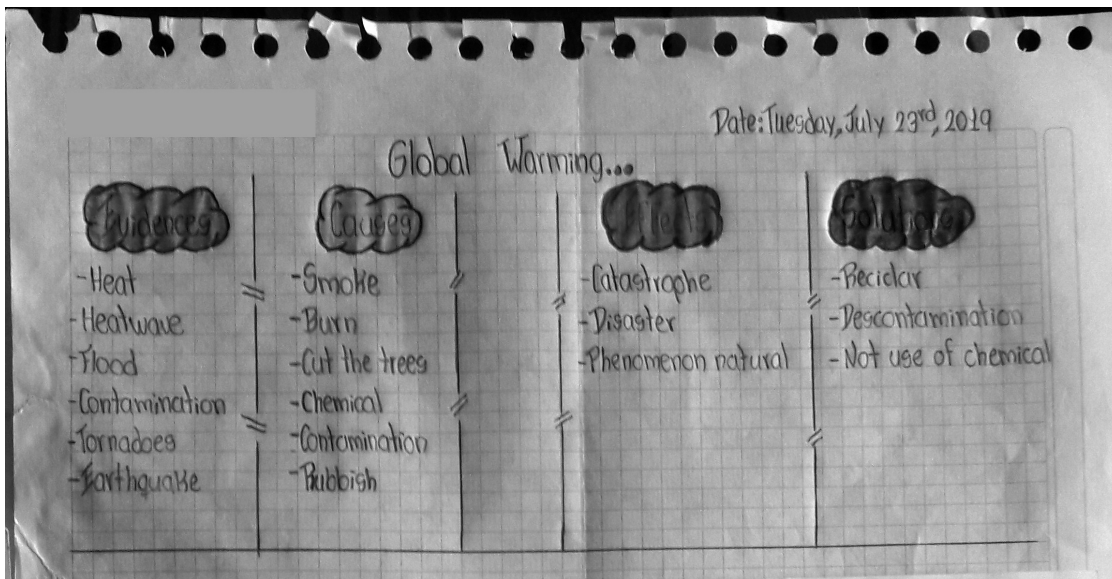 Date: Tuesday, July 23rd, 2019
Global Warming...
Evidences
-Heat
-Heatwave
-Flood
-Contamination
-Tornadoes
-Earthquake
Causes
-Smoke
-Burn
-Cut the trees
-Chemical
-Contamination
-Rubbish
-Catastrophe
-Disaster
-Phenomenon natural
Solations
-Reciclar
-Descontamination
-Not use of chemical